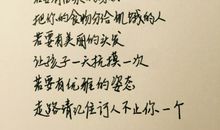 把你的食物分给饥饿的人
若要有美丽的头发
让孩子一天抚摸一次
若要有优雅的姿态
走路请记住行人不止你一个